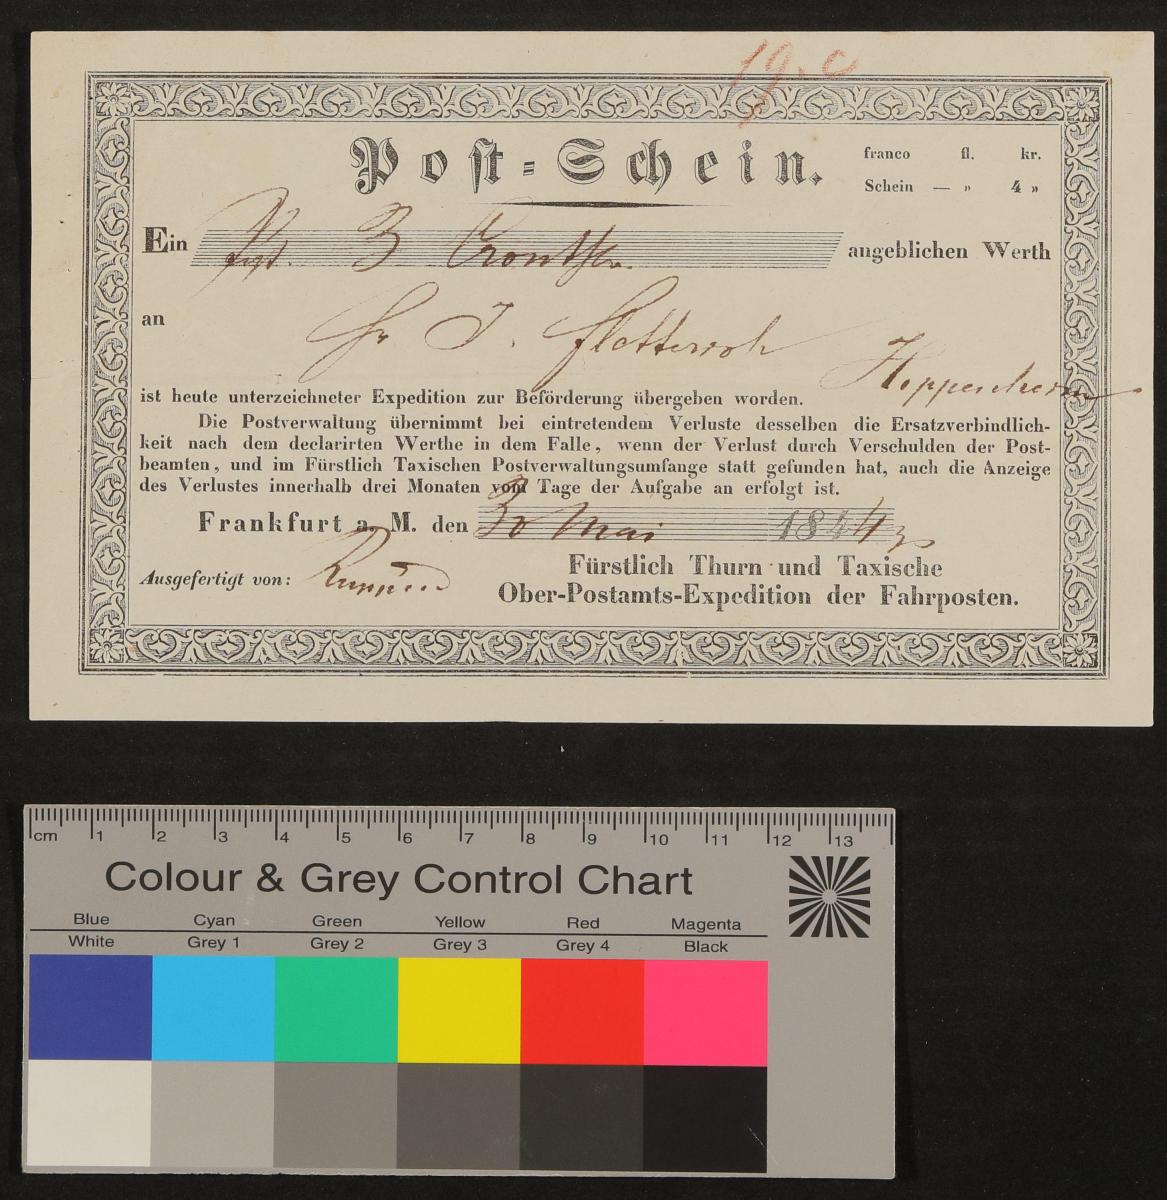 19. c
Post-Schein.
franco fl. kr.
Schein — „ 4 „
Ein 3 angeblichen Werth
an
J.
ist heute unterzeichneter Expedition zur Beförderung übergeben worden.
Die Postverwaltung übernimmt bei eintretendem Verluste desselben die Ersatzverbindlich-
keit nach dem declarirten Werthe in dem Falle, wenn der Verlust durch Verschulden der Post-
beamten, und im Fürstlich Taxischen Postverwaltungsumfange statt gefunden hat, auch die Anzeige
des Verlustes innerhalb drei Monaten vom Tage der Aufgabe an erfolgt ist.
Frankfurt a. M. den 30 Mai 184
Ausgefertigt von:
Fürstlich Thurn und Taxische
Ober-Postamts-Expedition der Fahrposten.
cm 1 2 3 4 5 6 7 8 9 10 11 12 13
Colour & Grey Control Chart
Blue Cyan Green Yellow Red Magenta
White Grey 1 Grey 2 Grey 3 Grey 4 Black